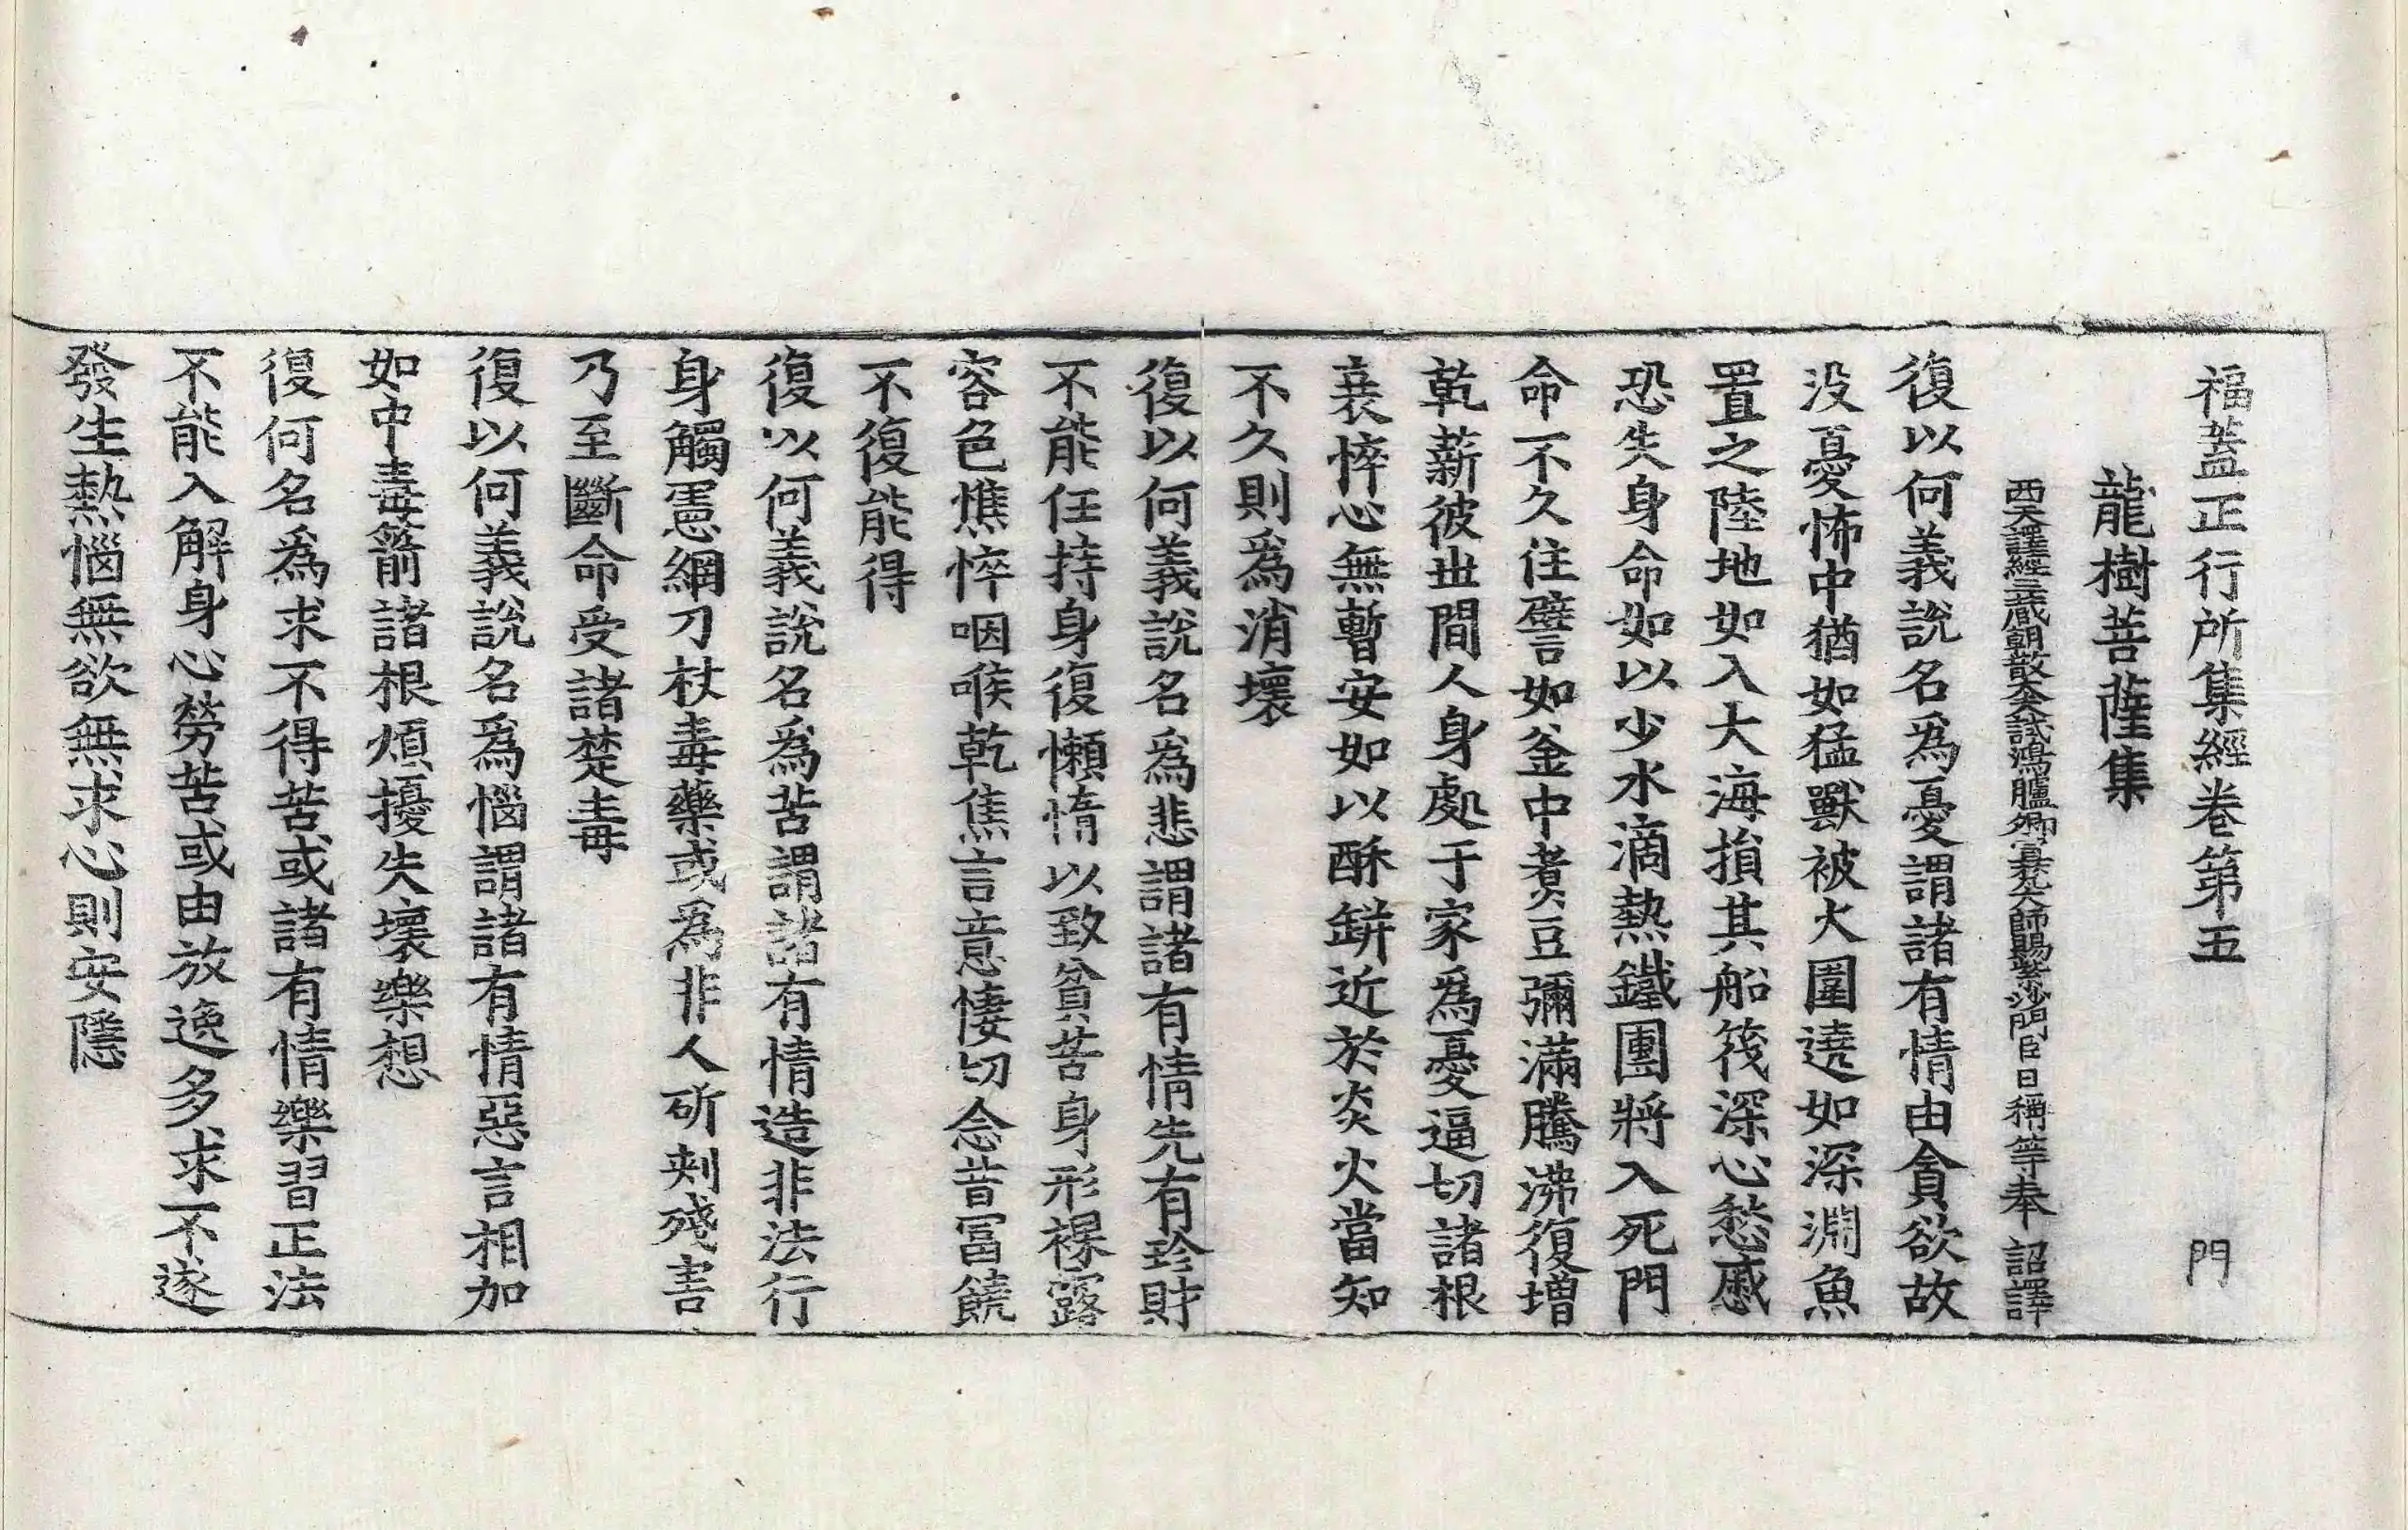 福蓋正行所集經卷第五 門
龍樹菩薩集
西天譯經三藏朝散大夫試鴻臚卿宣梵大師賜紫沙門臣日稱等奉 詔譯
復以何義說名爲憂謂諸有情由貪欲故
没憂怖中猶如猛獸被火圍遶如深淵魚
置之陸地如入大海損其船筏深心愁慼
恐失身命如以少水滴熱鐵團將入死門
命不久住譬如釜中煑豆彌滿騰沸復增
乾薪彼世間人身處于家爲憂逼切諸根
衰悴心無暫安如以酥缾近於炎火當知
不久則爲消壞
復以何義說名爲悲謂諸有情先有珍財
不能任持身復懶惰以致貧苦身形裸露
容色憔悴咽喉乾焦言意悽切念昔冨饒
不復能得
復以何義說名爲苦謂諸有情造非法行
身觸憲網刀杖毒藥或爲非人斫刺殘害
乃至斷命受諸楚毒
復以何義說名爲惱謂諸有情惡言相加
如中毒箭諸根煩擾失壞樂想
復何名爲求不得苦或諸有情樂習正法
不能入解身心勞苦或由放逸多求不遂
發生熱惱無欲無求心則安隱